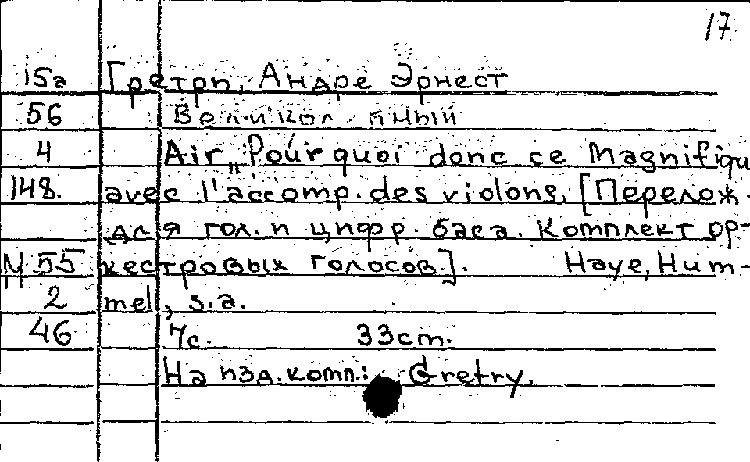 17
15а Гретри, Андре Эрнест
56 Великол пный
4 Air „Pourquoi donc ce Magnifiqu
148. avec l'accomp. des violons. [Перелож.
для гол. и цифр. баса. Комплект ор-
М 55 кестровых голосов]. Haye, Hum-
2 mel, s.a.
46 7с. 33cm.
На изд. комп.: Gretry.